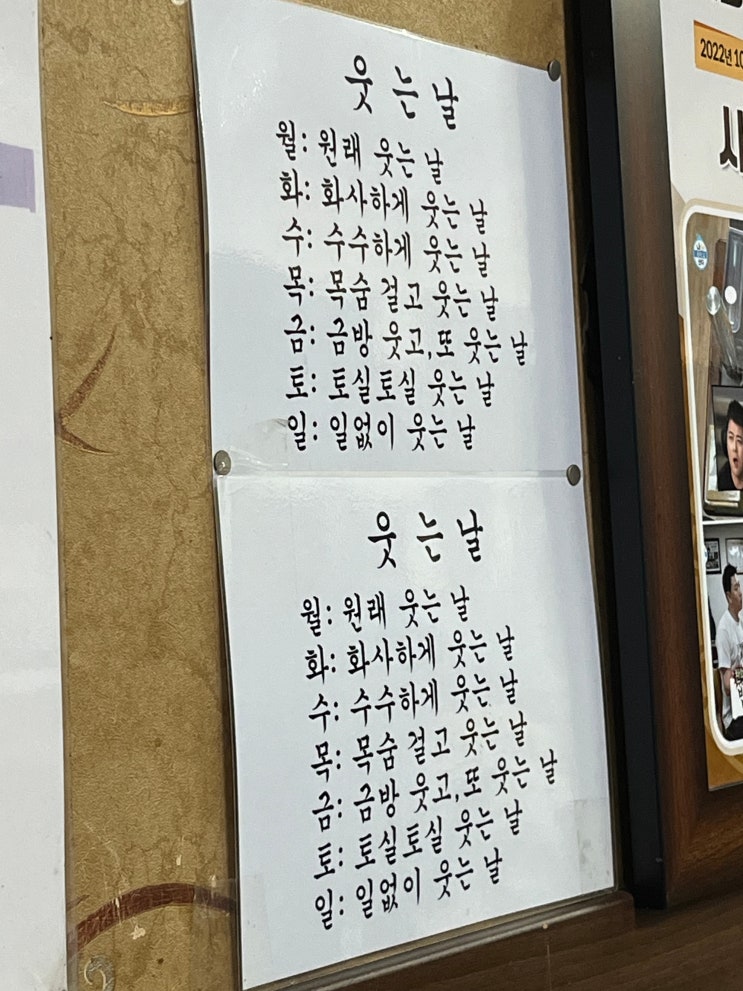 웃는날
월: 원래 웃는 날
화: 화사하게 웃는 날
수: 수수하게 웃는 날
목: 목숨 걸고 웃는 날
금: 금방 웃고, 또 웃는 날
토: 토실토실 웃는 날
일: 일없이 웃는 날
웃는날
월: 원래 웃는 날
화: 화사하게 웃는 날
수: 수수하게 웃는 날
목: 목숨 걸고 웃는 날
금: 금방 웃고, 또 웃는 날
토: 토실토실 웃는 날
일: 일없이 웃는 날
2022년 10